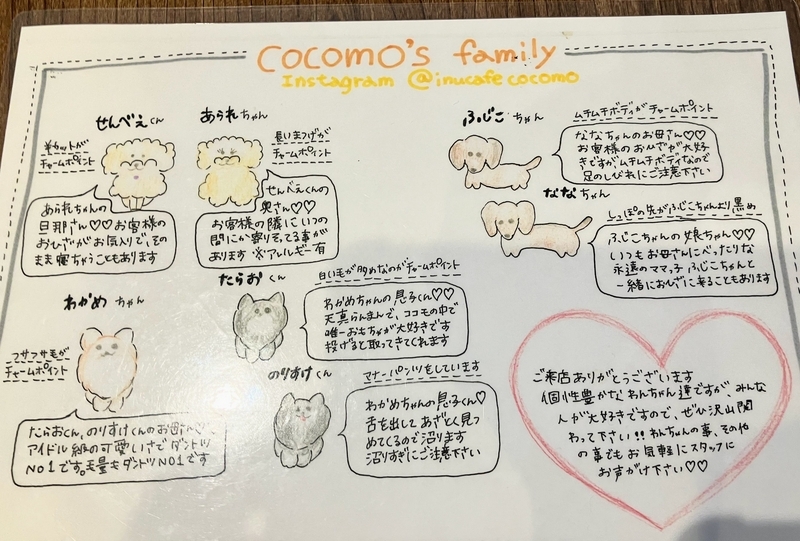 COCOMO's family
Instagram @inucafe cocomo
せんべえくん
カットが
チャームポイント
あられちゃんの
旦那さん♡♡お客様の
おひざがお気入りで、その
まま寝ちゃうこともあります
あられちゃん
長いまつげが
チャームポイント
せんべえくんの
奥さん♡♡
お客様の隣にいつの
間にか寄りそってる事が
あります ※アレルギー有
ふじこちゃん
ムチムチボディがチャームポイント
ななちゃんのお母さん♡♡
お客様のおひざが大好
きですが、ムチムチボディなので
足のしびれにご注意下さい
ななちゃん
しっぽの先がふじこちゃんより黒め
ふじこちゃんの娘ちゃん♡♡
いつもお母さんにべったりな
永遠のママっ子 ふじこちゃんと
一緒におひざに来ることもあります
わかめちゃん
フサフサ毛が
チャームポイント
たらおくん、のりすけくんのお母
アイドル級の可愛いさでダントツ
NO1です。毛量もダントツNO1です
たらおくん
白い毛が多めなのがチャームポイント
わかめちゃんの息子くん♡♡
天真らんまんで、ココモの中で
唯一おもちゃが大好きです
投げると取ってきてくれます
のりすけくん
マナーパンツをしています
わかめちゃんの息子くん♡
舌を出してあざとく見つ
めてくるので沼ります
沼りすぎにご注意下さい
ご来店ありがとうございます
個性豊かなわんちゃん達ですが、みんな
人が大好きですので、ぜひ沢山関
わって下さい!!わんちゃんの事、その他
の事でもお気軽にスタッフに
お声がけ下さい♡♡